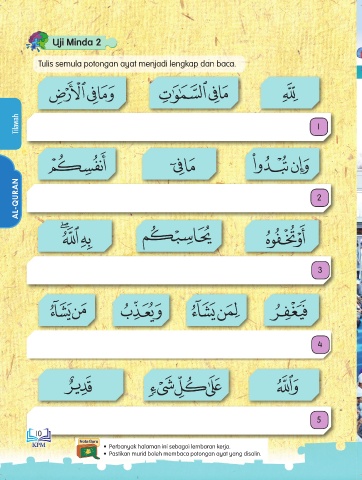 Uji Minda 2
Tulis semula potongan ayat menjadi lengkap dan baca.
لِلَّهِ مَافِي ٱلسَّمَٰوَٰتِ وَمَافِي ٱلْأَرْضِ
1
وَإِن تُبْدُوا۟ مَافِىٓ أَنفُسِكُمْ
2
أَوْ تُخْفُوهُ يُحَاسِبْكُم بِهِ ٱللَّهُ ۖ
3
فَيَغْفِرُ لِمَن يَشَآءُ وَيُعَذِّبُ مَن يَشَآءُ
4
وَٱللَّهُ عَلَىٰ كُلِّ شَىْءٍ قَدِيرٌ
5
Tilawah
AL-QURAN
10
KPM
Nota Guru
• Perbanyak halaman ini sebagai lembaran kerja.
• Pastikan murid boleh membaca potongan ayat yang disalin.